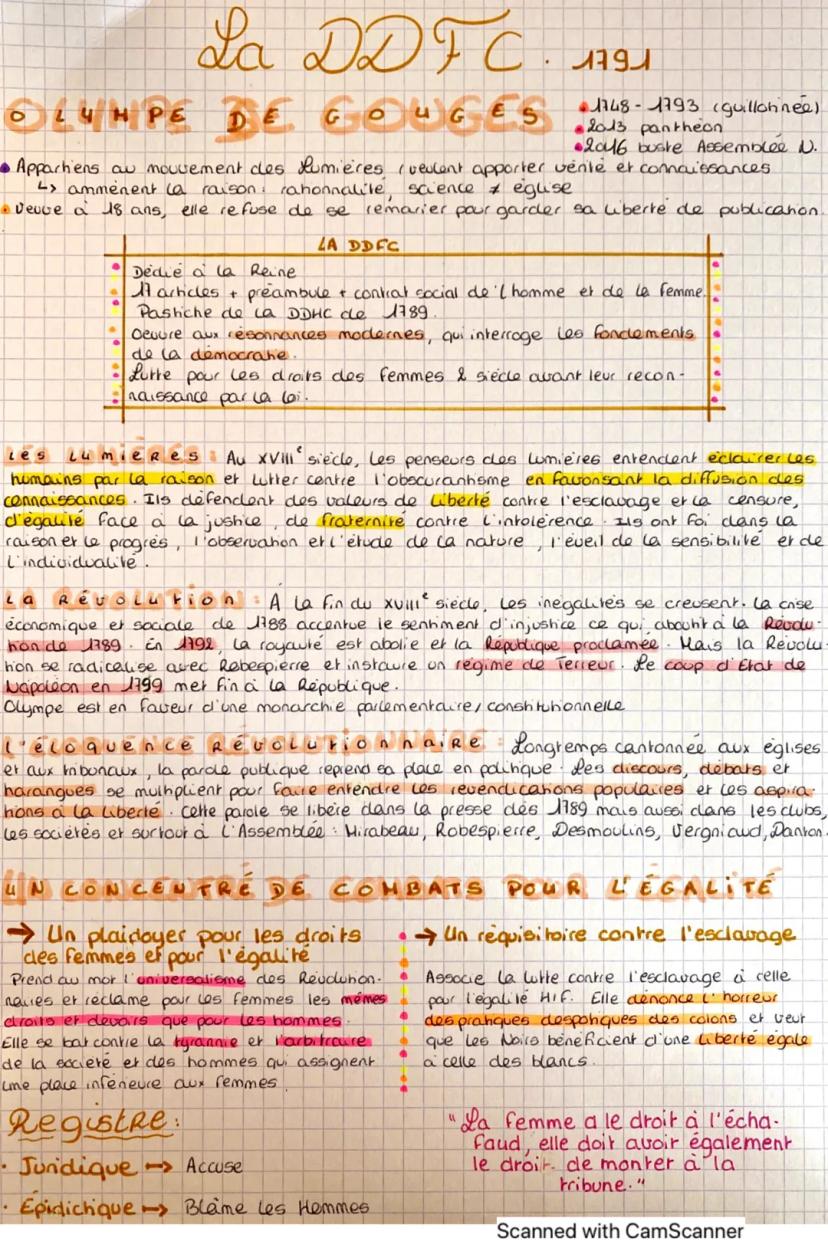 La DDFC. 1791
OLYMPE DE GOUGES
• 1748 - 1793 (guillotinée)
• 2013 panthéon
• 2016 buste Assemblée N.
• Appartiens au mouvement des Lumières, veulent apporter vérité et connaissances
↳ ammènent la raison : rationnalité, science ≠ église
• Veuve à 18 ans, elle refuse de se remarier pour garder sa liberté de publication.
LA DDFC
Dédié à la Reine
17 articles + préambule + contrat social de l'homme et de la femme.
Pastiche de la DDHC de 1789.
Oeuvre aux résonnances modernes, qui interroge les fondements
de la démocratie.
Lutte pour les droits des femmes 2 siècle avant leur recon-
naissance par la loi.
LES LUMIÈRES : Au XVIIIe siècle, les penseurs des lumières entendent éclairer les
humains par la raison et lutter contre l'obscurantisme en favorisant la diffusion des
connaissances. Ils défendent des valeurs de liberté contre l'esclavage et la censure,
d'égalité face à la justice, de fraternité contre l'intolérence. Ils ont foi dans la
raison et le progrès, l'observation et l'étude de la nature, l'éveil de la sensibilité et de
l'individualité.
LA RÉVOLUTION : À la fin du XVIIIe siècle, les inégalités se creusent. La crise
économique et sociale de 1788 accentue le sentiment d'injustice ce qui aboutit à la Révolu-
tion de 1789. En 1792, la royauté est abolie et la République proclamée. Mais la Révolu-
tion se radicalise avec Robespierre et instaure un régime de Terreur. Le coup d'État de
Napoléon en 1799 met fin à la République.
Olympe est en faveur d'une monarchie parlementaire/constitutionnelle
L'ÉLOQUENCE RÉVOLUTIONNAIRE : Longtemps cantonnée aux églises
et aux tribunaux, la parole publique reprend sa place en politique. Les discours, débats et
harangues se multiplient pour faire entendre les revendications populaires et les aspira-
tions à la liberté. Cette parole se libère dans la presse dès 1789 mais aussi dans les clubs,
les sociétés et surtout à l'Assemblée : Mirabeau, Robespierre, Desmoulins, Vergniaud, Danton.
UN CONCENTRÉ DE COMBATS POUR L'ÉGALITÉ
→ Un plaidoyer pour les droits
des femmes et pour l'égalité
Prend au mot l'universalisme des Révolution-
naires et réclame pour les femmes les mêmes
droits et devoirs que pour les hommes.
Elle se bat contre la tyrannie et l'arbitraire
de la société et des hommes qui assignent
une place inférieure aux femmes.
→ Un réquisitoire contre l'esclavage
Associe la lutte contre l'esclavage à celle
pour l'égalité H/F. Elle dénonce l'horreur
des pratiques despotiques des colons et veut
que les Noirs bénéficient d'une liberté égale
à celle des blancs.
Registre :
• Juridique → Accuse
• Épidictique → Blâme les Hommes
"La femme a le droit à l'écha-
faud, elle doit avoir également
le droit de monter à la
tribune."
Scanned with CamScanner